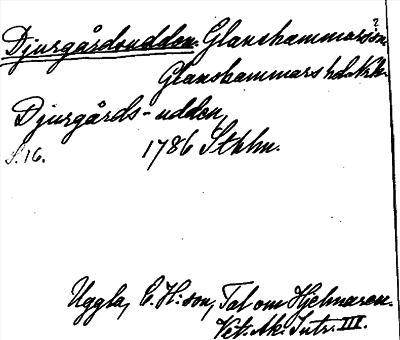 Djurgårdsudden. Glanshammars sn ?
Glanshammars hd. Nrke.
Djurgårds-udden,
S. 16. 1786 Sthlm.
Uggla, C. H:son, Tal om Hjelmaren.
Vet. Ak. Intr. III.